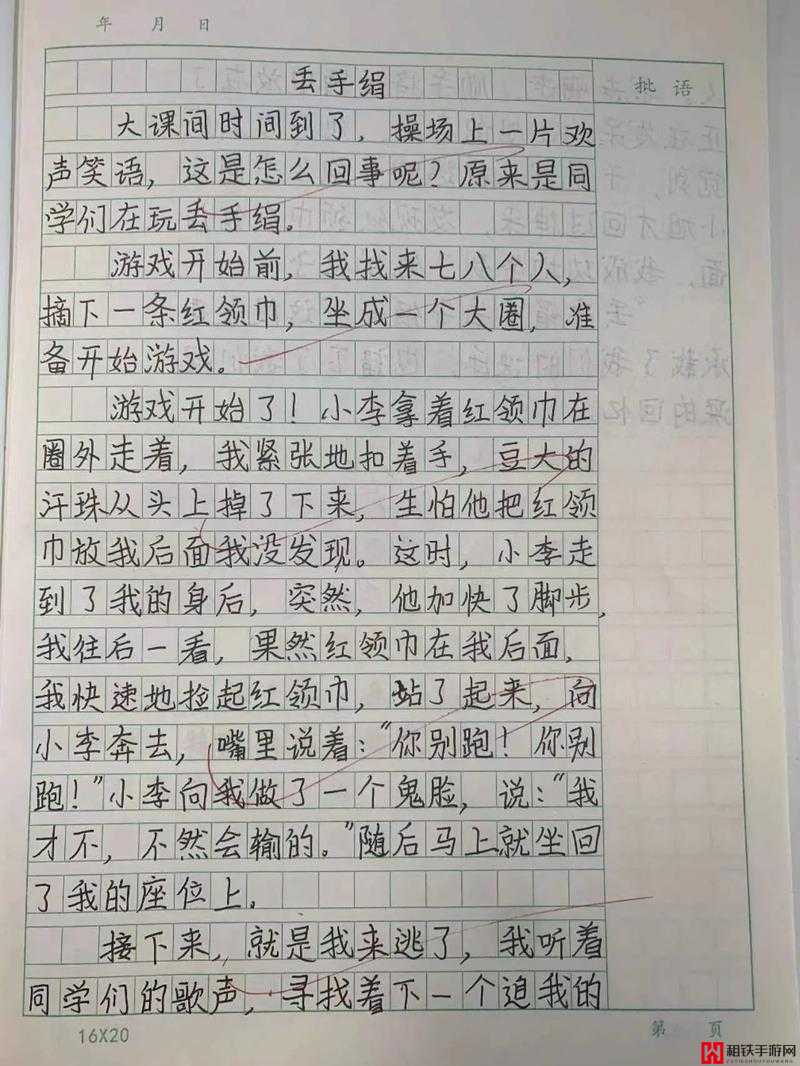 年 月 日
丢手绢
批语
大课间时间到了，操场上一片欢
声笑语，这是怎么回事呢？原来是同
学们在玩丢手绢。
游戏开始前，我找来七八个人，
摘下一条红领巾，坐成一个大圈，准
备开始游戏。
游戏开始了！小李拿着红领巾在
圈外走着，我紧张地扣着手，豆大的
汗珠从头上掉了下来，生怕他把红领
巾放我后面我没发现。这时，小李走
到了我的身后，突然，他加快了脚步，
我往后一看，果然红领巾在我后面，
我快速地捡起红领巾，站了起来，向
小李奔去，嘴里说着：“你别跑！你别
跑！”小李向我做了一个鬼脸，说：“我
才不，不然会输的。”随后马上就坐回
了我的座位上。
接下来，就是我来逃了，我听着
同学们的歌声，寻找着下一个追我的
16X20
第 页
租铁手游网